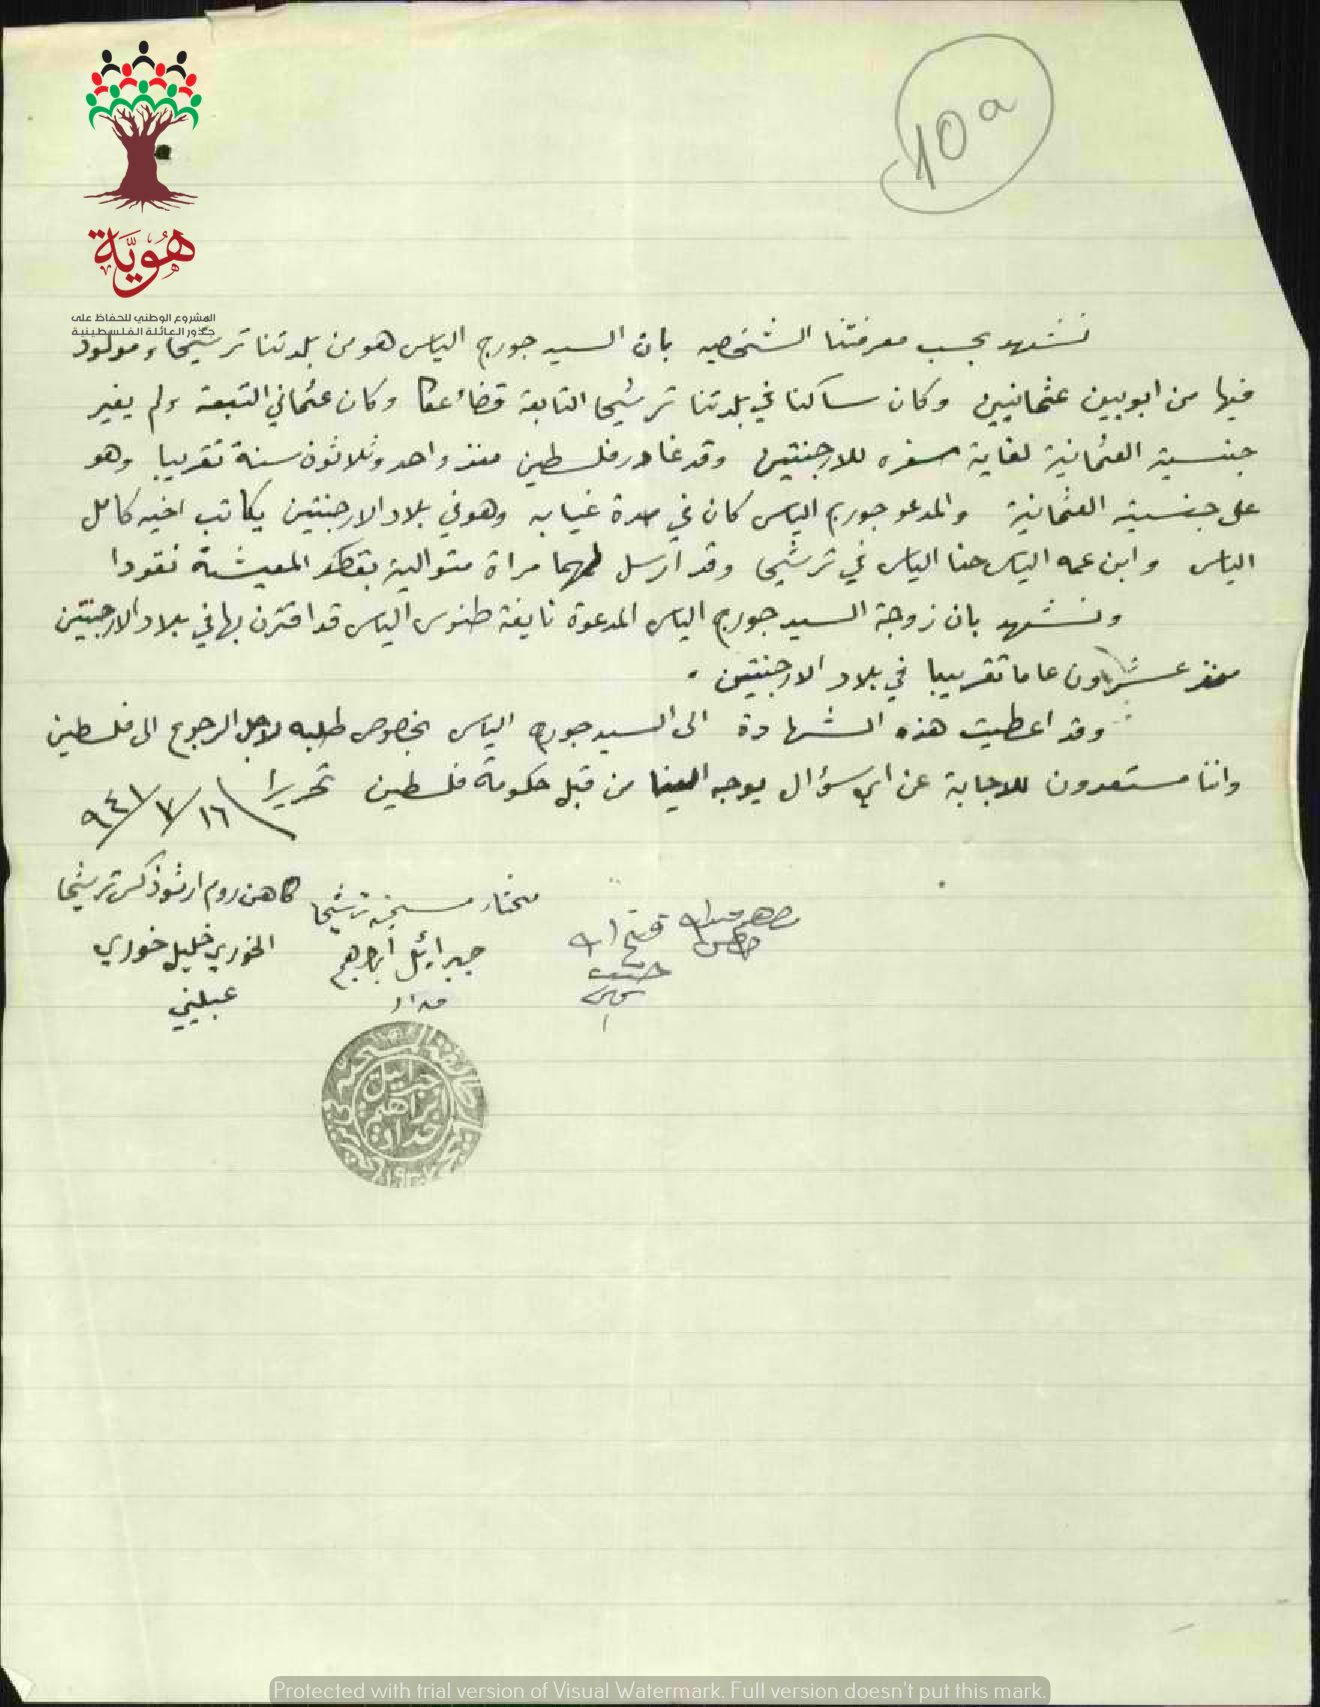 10a
هُوِيَّة
المشروع الوطني للحفاظ على
جذور العائلة الفلسطينية
نشهد بحسب معرفتنا الشخصيه بان السيد جورج الياس هو من بلدتنا ترشيحا ومولود
فيها من ابويين عثمانيين وكان ساكنا في بلدتنا ترشيحا التابعة قضاء عكا وكان عثماني التبعة ولم يغير
جنسيته العثمانية لغاية سفره للارجنتين وقد غادر فلسطين منذ واحد وثلاثون سنة تقريبا وهو
على جنسيته العثمانية والمدعو جورج الياس كان في مدة غيابه وهو في بلاد الارجنتين يكاتب اخيه كامل
الياس وابن عمه الياس حنا الياس في ترشيحا وقد ارسل لهما مراة متوالية المعيشة نقودا
ونشهد بان زوجة السيد جورج الياس المدعوة نايفة طنوس الياس قد اقترن بها في بلاد الارجنتين
منذ عشرون عاما تقريبا في بلاد الارجنتين .
وقد اعطيت هذه الشهادة الى السيد جورج الياس بخصوص طلبه لاجل الرجوع الى فلسطين
واننا مستعدون للاجابة عن اي سؤال يوجه الينا من قبل حكومة فلسطين تحريرا ١٦/٧/٩٤١
كاهن روم ارثوذكس ترشيحا
الخوري خليل خوري
عبليني
مختار مسيحية ترشيحا
جبرائيل ابراهيم
حداد
جبرائيل
ابراهيم
حداد
١٩٣٧
Protected with trial version of Visual Watermark. Full version doesn't put this mark.